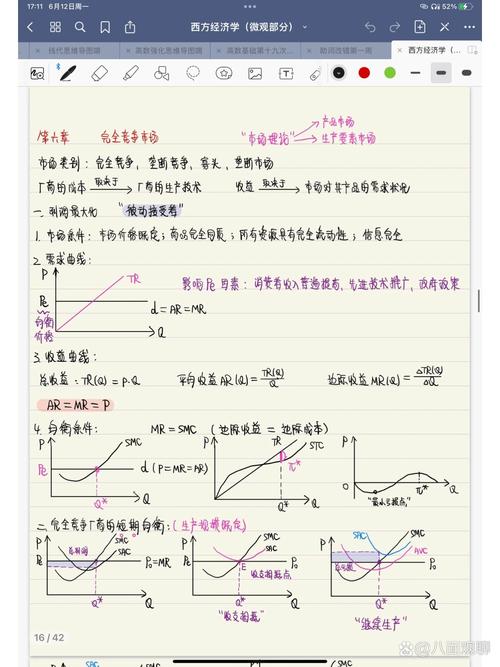 17:11 6月12日周一
52%
西方经济学（微观部分）
线代思维导图鹏
高数强化思维导图鹏
高数基础第十九次...
助词改错第一周
西方经济学（...
第六章 完全竞争市场 "市场理论" 产品市场
生产要素市场
市场类别：完全竞争，垄断竞争，寡头，垄断市场
厂商的成本 取决于 厂商的生产技术 收益 取决于 市场对其产品的需求状况
一. 利润最大化 "被动接受者"
1. 市场条件：市场价格既定；商品完全同质；所有资源具有完全流动性；信息完全
2. 需求曲线：
P TR
Pe
均衡价格
d = AR = MR
Q
影响Pe因素：消费者收入普遍提高，先进技术推广，政府政策
3. 收益曲线：
总收益：TR(Q) = P·Q 平均收益 AR(Q) = TR(Q)/Q 边际收益 MR(Q) = ΔTR(Q)/ΔQ
AR = MR = P
4. 均衡条件： MR = SMC （边际收益 = 边际成本）
P SMC Pe d (P=MR=AR) Q* Q
P TR STC π* Q* Q
P 0 π* Q
二. 完全竞争厂商的短期均衡：(生产规模既定)
P SMC SAC Pe 总利润 P₀=MR Q* Q
P SMC SAC P₀ E 收支相抵点 Q* Q
P SAC SMC AVC P₀ Q* Q
"收支相抵" "继续生产"
16 / 42
@八面观聊